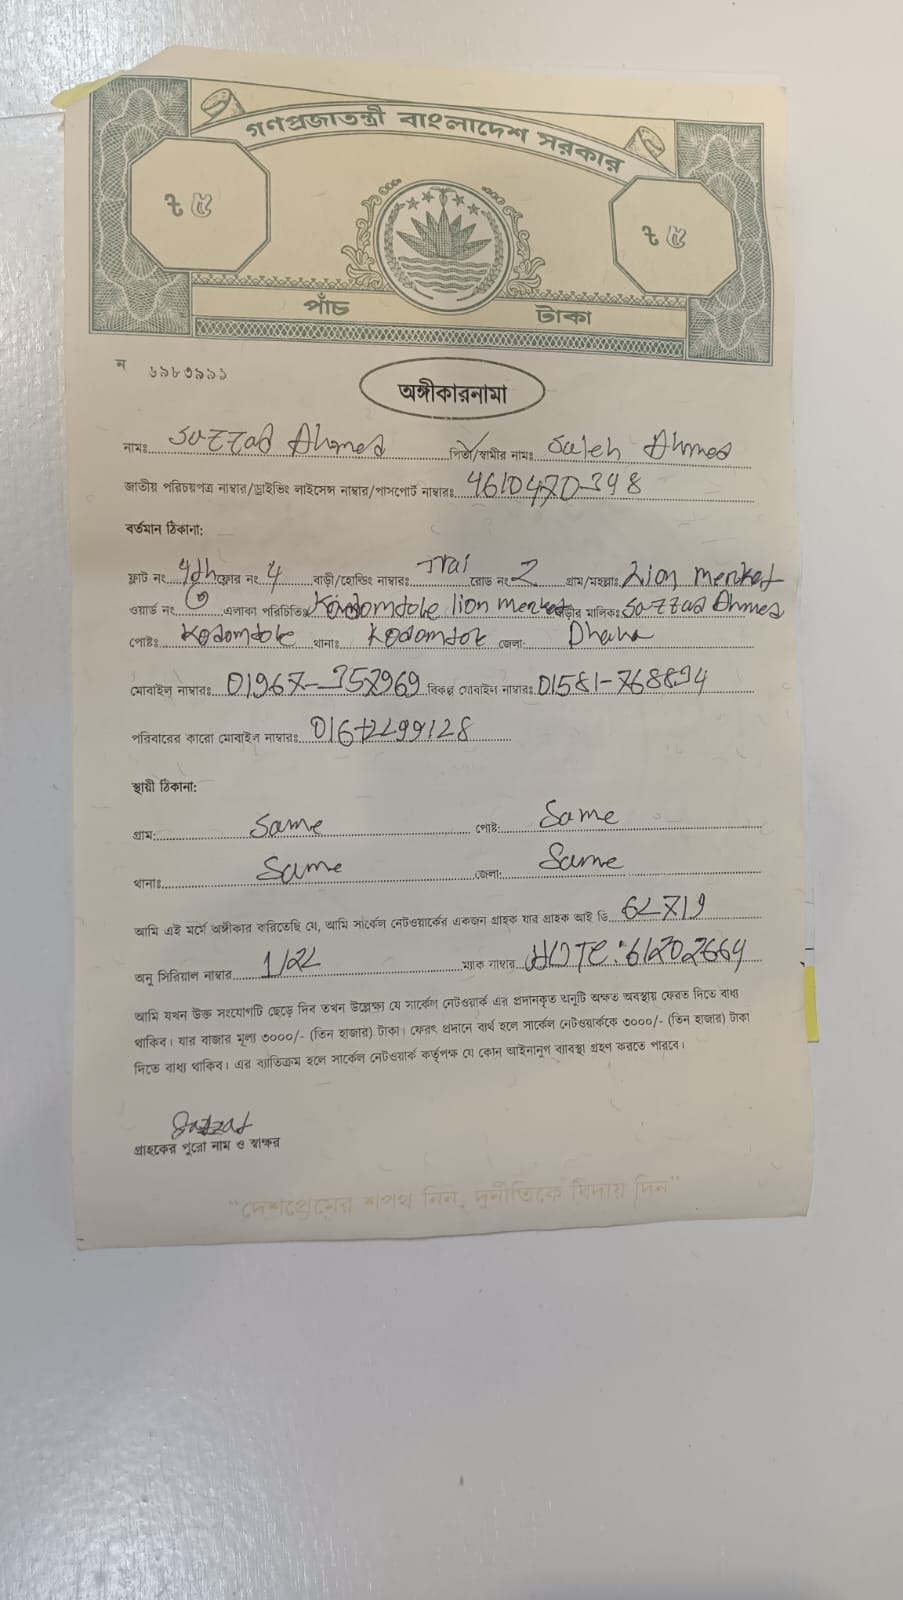 গণপ্রজাতন্ত্রী বাংলাদেশ সরকার
৳ ৫ ৳ ৫
পাঁচ টাকা
ন ৬৯৮৩৯৯১
অঙ্গীকারনামা
নামঃ Sazzad Ahmed পিতা/স্বামীর নামঃ Saleh Ahmed
জাতীয় পরিচয়পত্র নাম্বার/ড্রাইভিং লাইসেন্স নাম্বার/পাসপোর্ট নাম্বারঃ
বর্তমান ঠিকানা:
ফ্লাট নং ফ্লোর নং 4 বাড়ী/হোল্ডিং নাম্বারঃ রোড নং 2 গ্রাম/মহল্লাঃ Lion Market
ওয়ার্ড নং এলাকা পরিচিতিঃ lion market বাড়ীর মালিকঃ Sazzad Ahmed
পোষ্টঃ থানাঃ জেলা: Dhaka
মোবাইল নাম্বারঃ বিকল্প মোবাইল নাম্বারঃ
পরিবারের কারো মোবাইল নাম্বারঃ
স্থায়ী ঠিকানা:
গ্রাম: Same পোষ্ট: Same
থানাঃ Same জেলা: Same
আমি এই মর্মে অঙ্গীকার করিতেছি যে, আমি সার্কেল নেটওয়ার্কের একজন গ্রাহক যার গ্রাহক আই ডি
অনু সিরিয়াল নাম্বার ম্যাক নাম্বার
আমি যখন উক্ত সংযোগটি ছেড়ে দিব তখন উল্লেক্ষ্য যে সার্কেল নেটওয়ার্ক এর প্রদানকৃত অনুটি অক্ষত অবস্থায় ফেরত দিতে বাধ্য
থাকিব। যার বাজার মূল্য ৩০০০/- (তিন হাজার) টাকা। ফেরৎ প্রদানে ব্যর্থ হলে সার্কেল নেটওয়ার্ককে ৩০০০/- (তিন হাজার) টাকা
দিতে বাধ্য থাকিব। এর ব্যতিক্রম হলে সার্কেল নেটওয়ার্ক কর্তৃপক্ষ যে কোন আইনানুগ ব্যবস্থা গ্রহণ করতে পারবে।
Sazzad
গ্রাহকের পুরো নাম ও স্বাক্ষর
"দেশপ্রেমের শপথ নিন, দুর্নীতিকে বিদায় দিন"